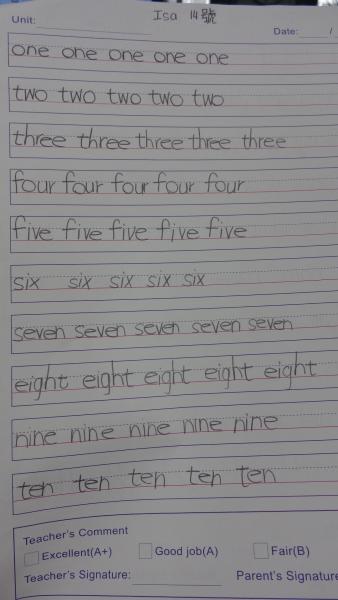 Unit: Isa 14號 Date: /
one one one one one
two two two two two
three three three three three
four four four four four
five five five five five
six six six six six
seven seven seven seven seven
eight eight eight eight eight
nine nine nine nine nine
ten ten ten ten ten
Teacher's Comment
Excellent(A+) Good job(A) Fair(B)
Teacher's Signature: Parent's Signature